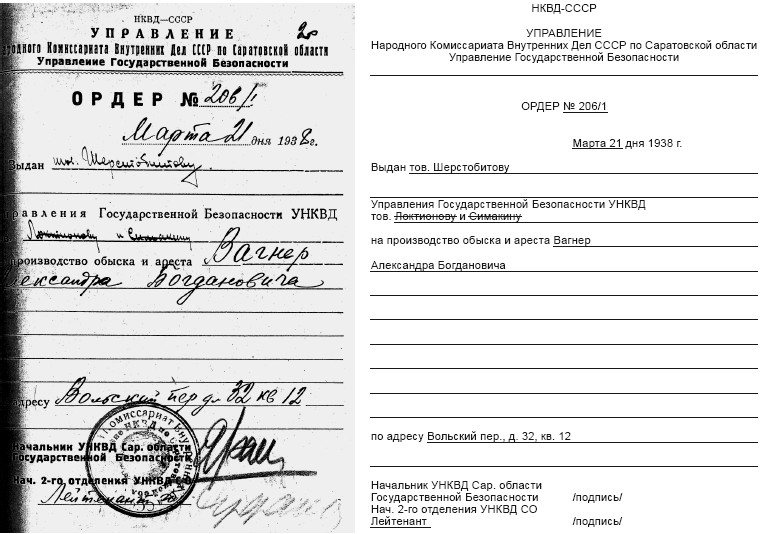 НКВД—СССР
УПРАВЛЕНИЕ
Народного Комиссариата Внутренних Дел СССР по Саратовской области
Управление Государственной Безопасности
ОРДЕР № 206/1
Марта 21 дня 1938 г.
Выдан тов. Шерстобитову
правления Государственной Безопасности УНКВД
Локтионову и Симакину
производство обыска и ареста Вагнер
лександра Богдановича
адресу Вольский пер д 32 кв 12
Начальник УНКВД Сар. области
Государственной Безопасности
Нач. 2-го отделения УНКВД СО
Лейтенант
НКВД-СССР
УПРАВЛЕНИЕ
Народного Комиссариата Внутренних Дел СССР по Саратовской области
Управление Государственной Безопасности
ОРДЕР № 206/1
Марта 21 дня 1938 г.
Выдан тов. Шерстобитову
Управления Государственной Безопасности УНКВД
тов. Локтионову и Симакину
на производство обыска и ареста Вагнер
Александра Богдановича
по адресу Вольский пер., д. 32, кв. 12
Начальник УНКВД Сар. области
Государственной Безопасности /подпись/
Нач. 2-го отделения УНКВД СО
Лейтенант /подпись/